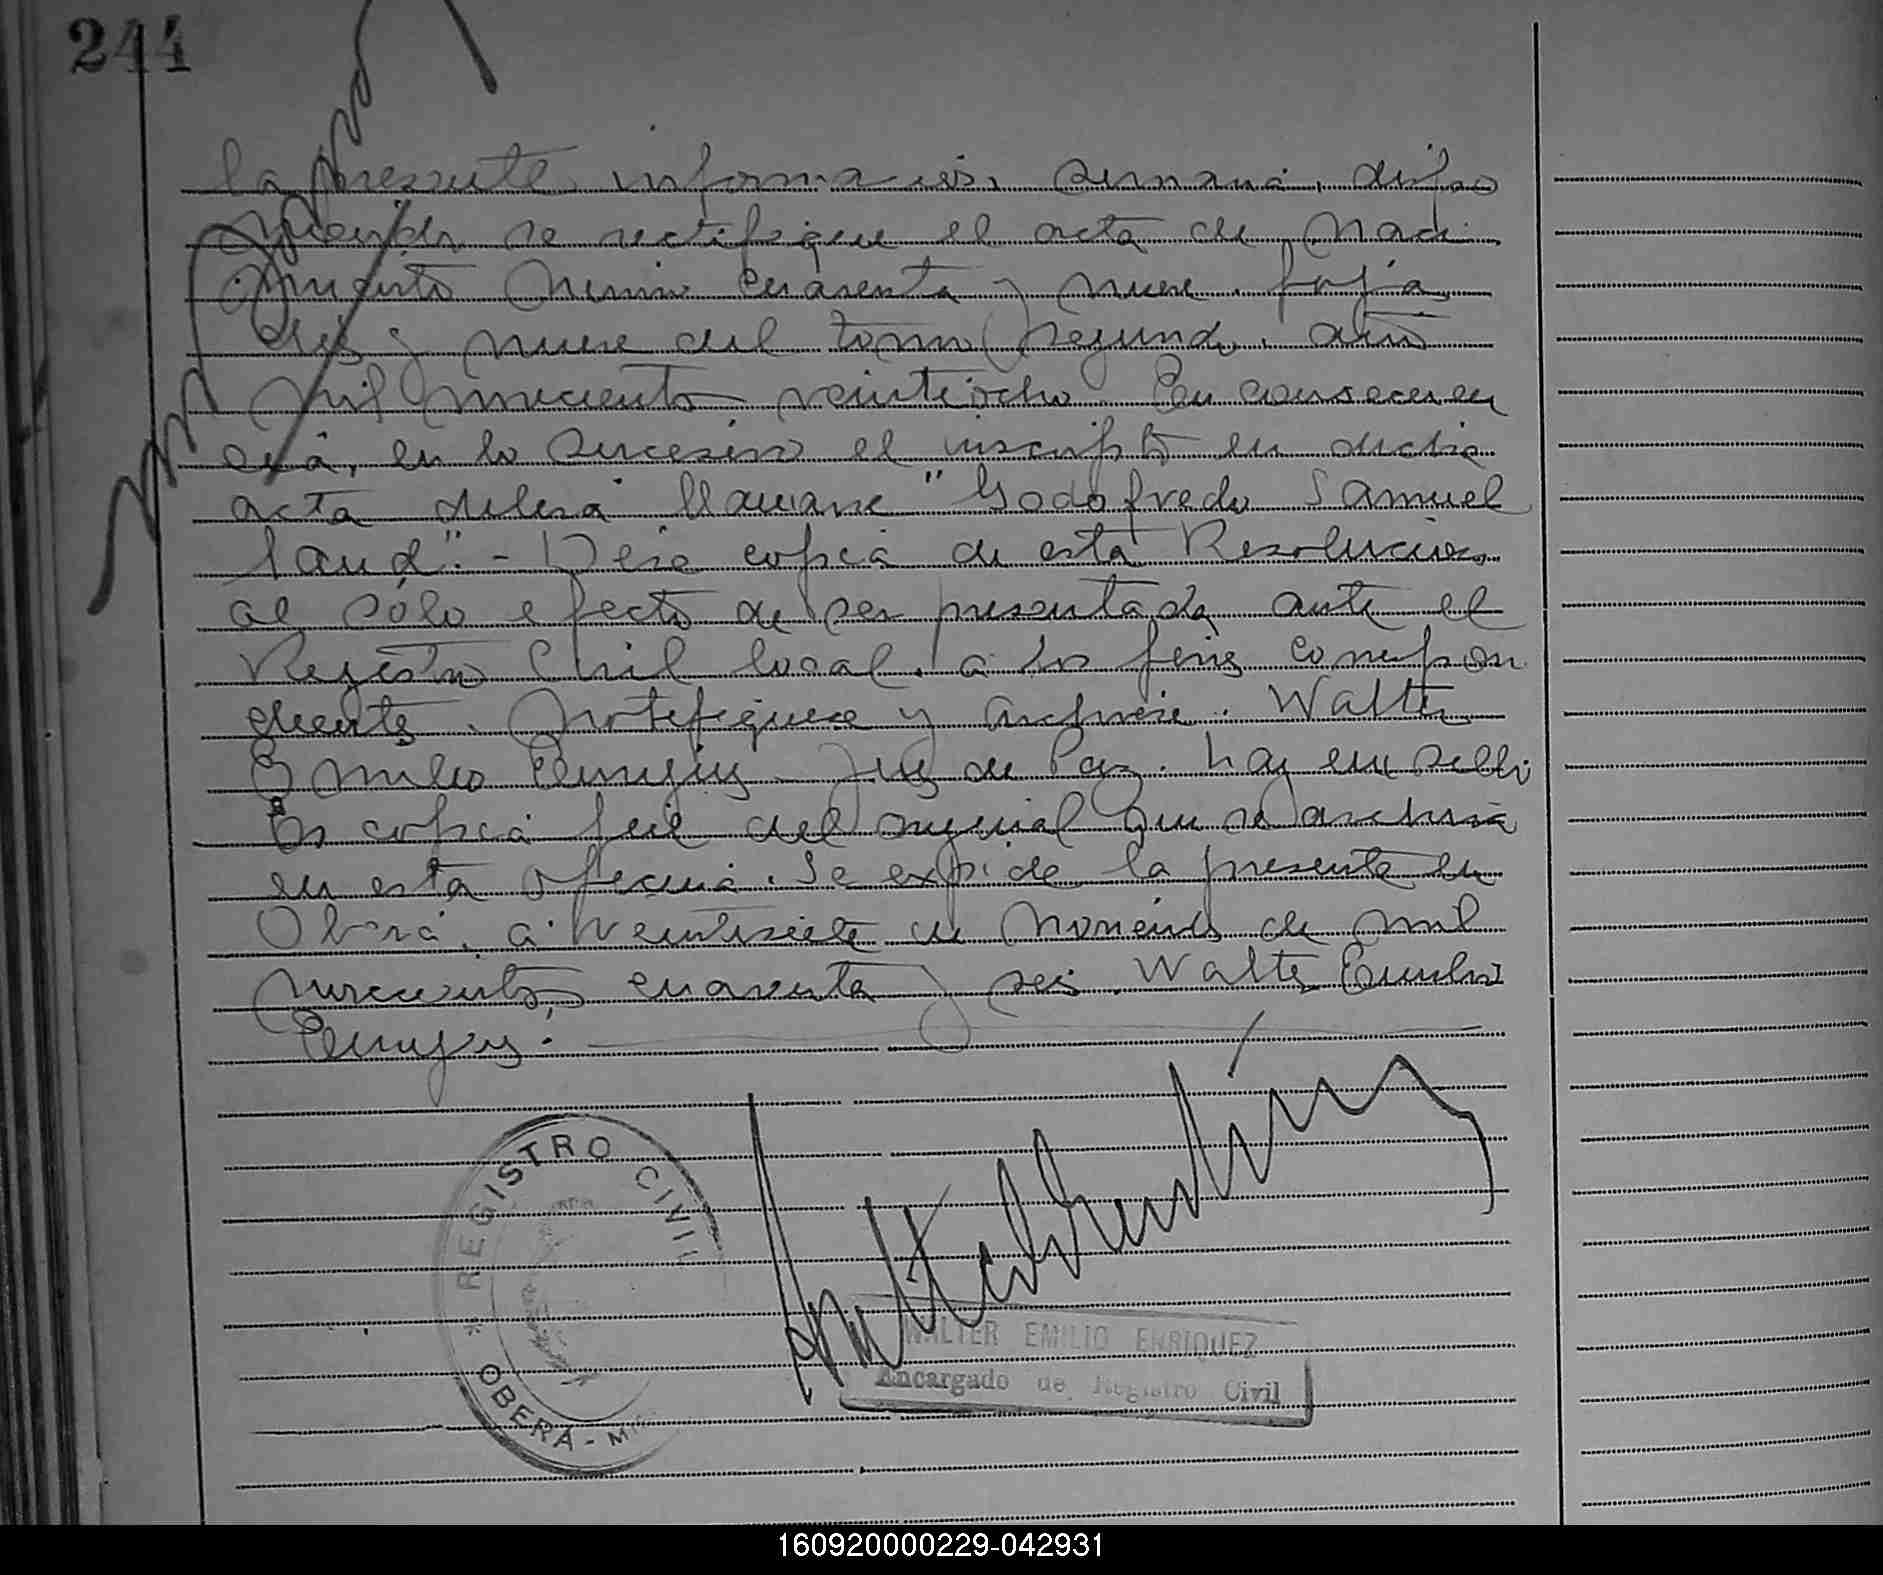 244
la presente información sumaria, dispo
niendo se rectifique el acta de naci
miento número cuarenta y nueve, foja
diez y nueve del tomo segundo, año
mil novecientos veinteiocho. En consecuen
cia, en lo sucesivo el inscripto en dicha
acta deberá llamarse "Godofredo Samuel
Sand". - Dése copia de esta Resolución,
al sólo efecto de ser presentada ante el
Registro Civil local, a los fines correspon
dientes. Notifíquese y archívese. Walter
Emilio Enriquez. Juez de Paz. hay un sello
Es copia fiel del original que se archiva
en esta oficina. Se expide la presente en
Oberá, a veintisiete de Noviembre de mil
novecientos cuarenta y seis. Walter Emilio
Enriquez.
REGISTRO CIVIL
* OBERÁ -
WALTER EMILIO ENRIQUEZ
Encargado de Registro Civil
160920000229-042931